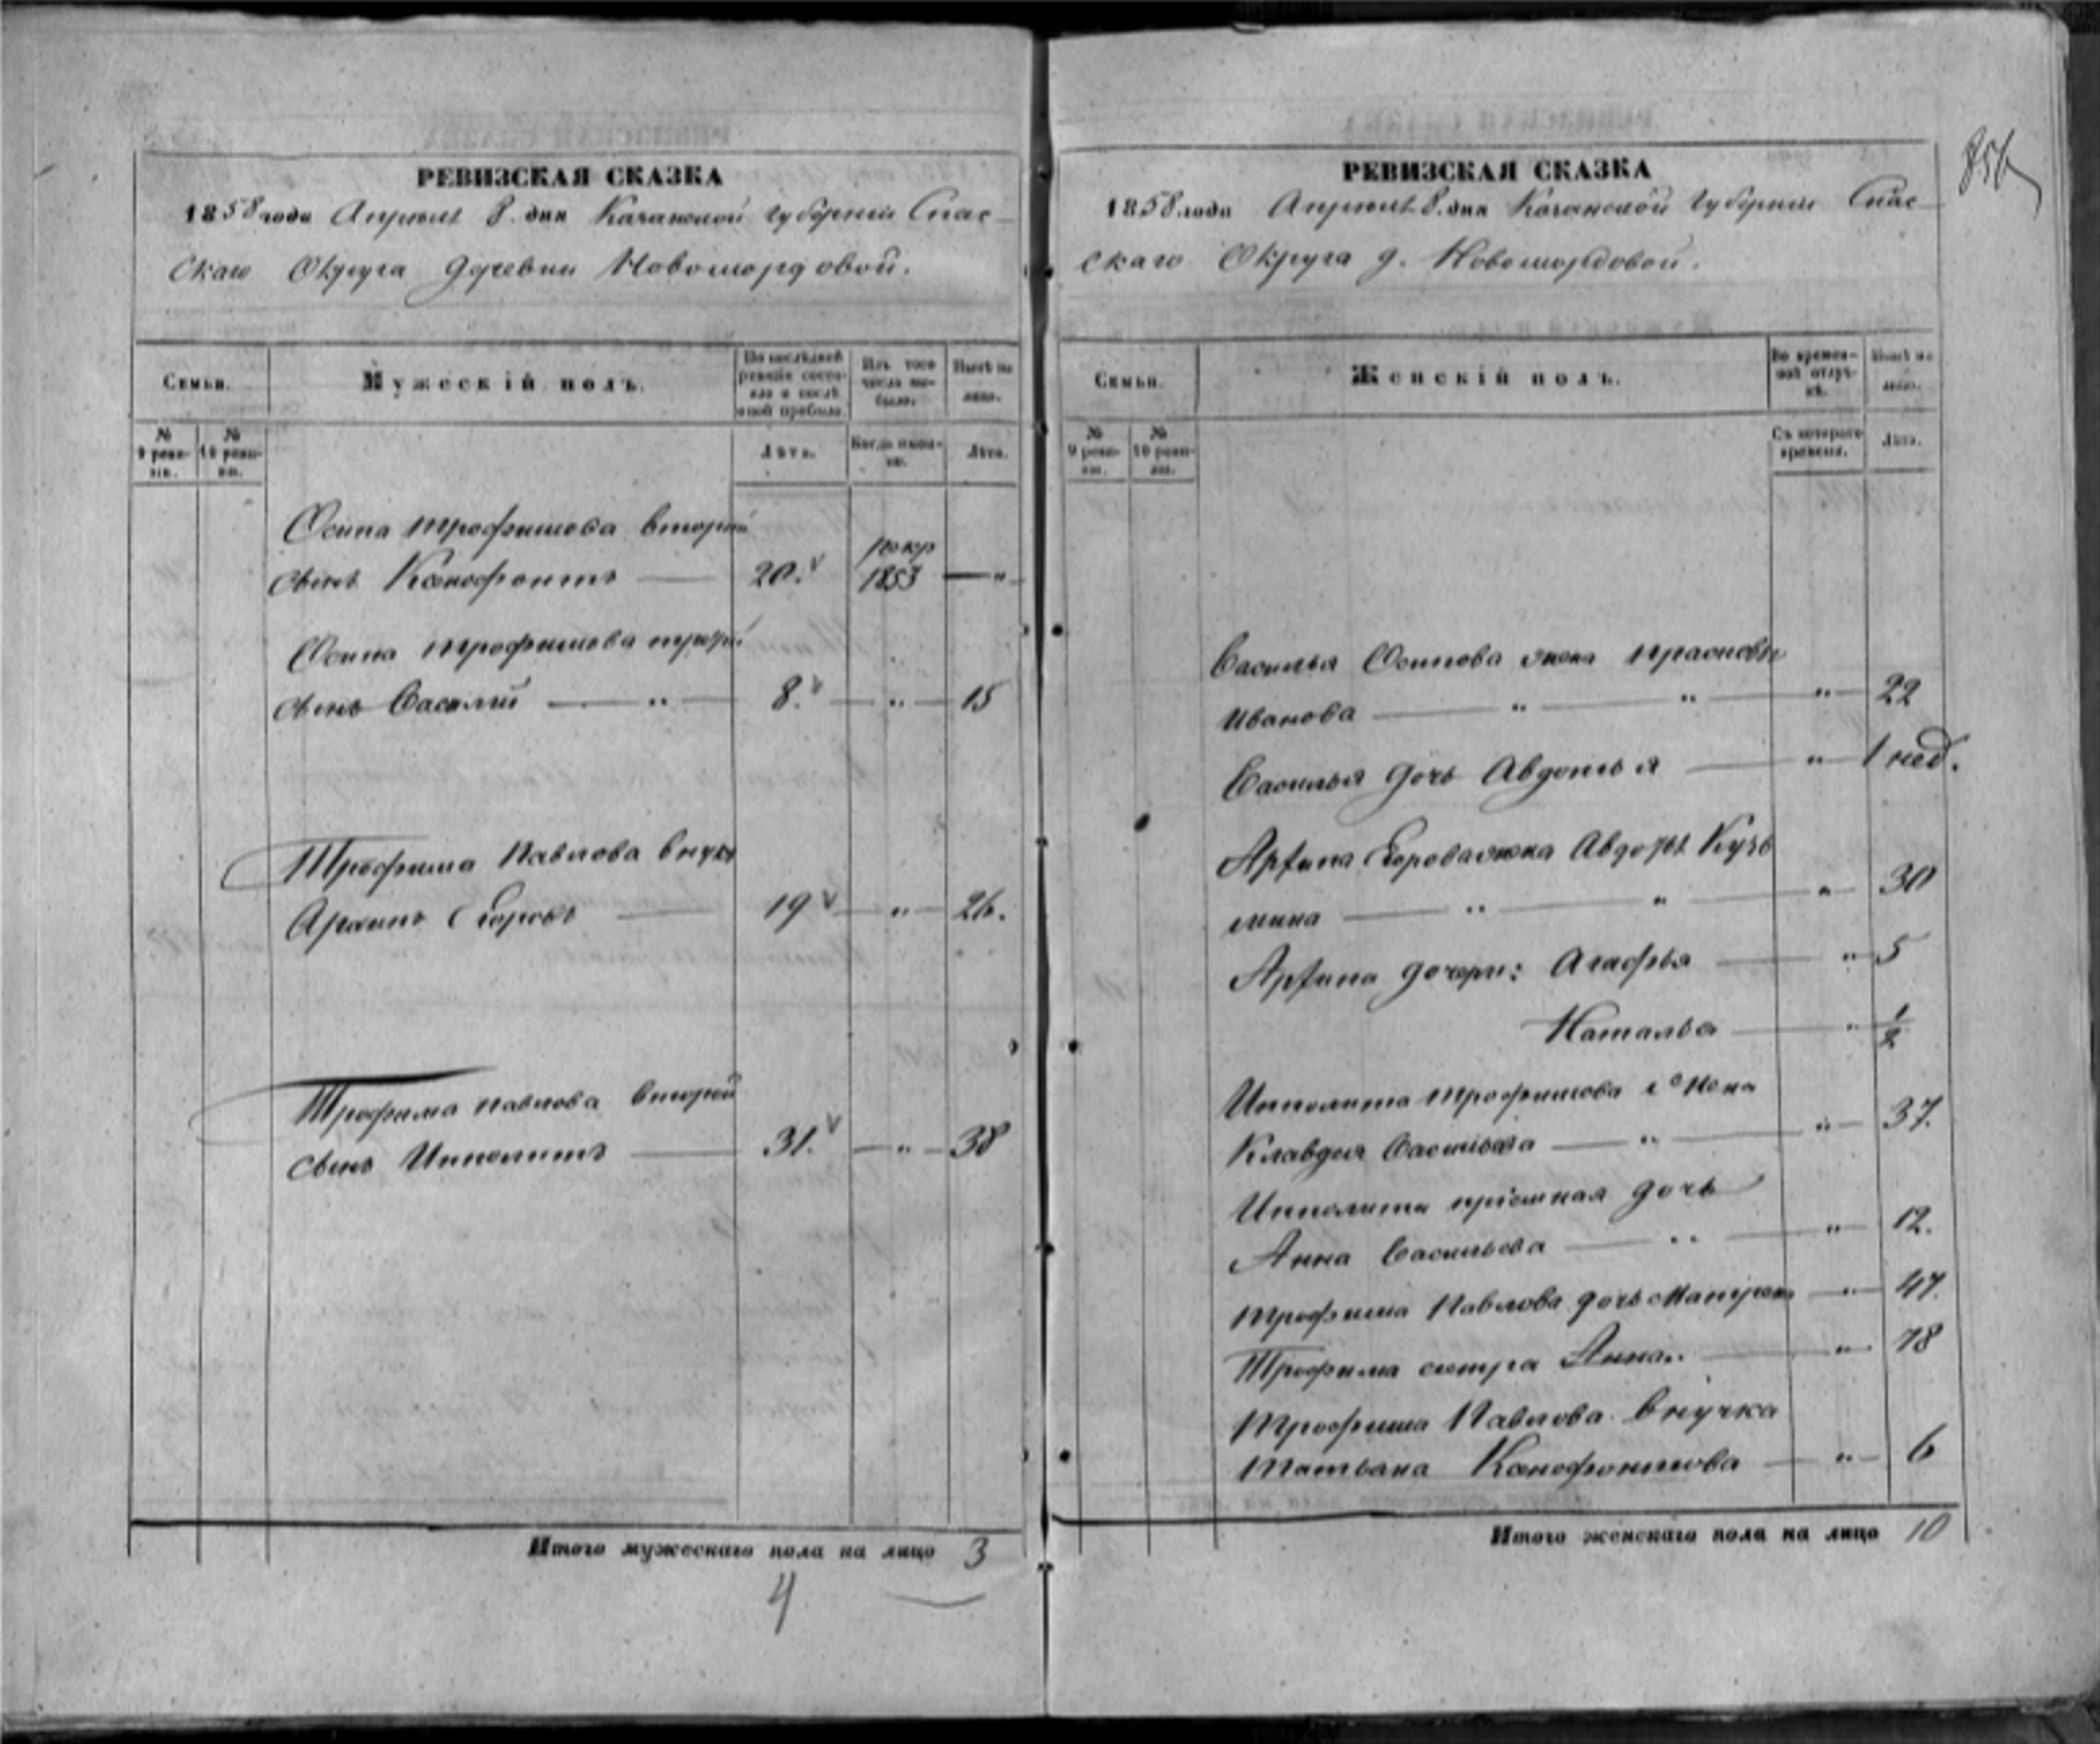 РЕВИЗСКАЯ СКАЗКА
1858 года Апреля 8. дня Казанской губернии Спас-
скаго Округа деревни Новомордовой.
Семьи.
Мужескій полъ.
По послѣдней ревизіи состояло и послѣ оной прибыло.
Изъ того числа выбыло.
Нынѣ на лицо.
№ 9 ревизіи.
№ 10 ревизіи.
Лѣта.
Когда именно.
Лѣта.
Осипа Трофимова второй
сынъ Ксенофонтъ — 20. 1853 — "
Осипа Трофимова
сынъ Василій — " — 8. — " — 15
Трофима Павлова внукъ
Архипъ Егоровъ — 19 — " — 26.
Трофима Павлова второй
сынъ Ипполитъ — 31. — " — 38
Итого мужескаго пола на лицо 3
4
РЕВИЗСКАЯ СКАЗКА
1858 года Апреля 8. дня Казанской губернии Спас-
скаго Округа д. Новомордовой.
Семьи.
Женскій полъ.
Во временной отлучкѣ.
Нынѣ на лицо.
№ 9 ревизіи.
№ 10 ревизіи.
Съ котораго времени.
Лѣта.
Василья Осипова жена Прасковья
Иванова — " — " — " — 22
Васильа дочь Авдотья — " — 1 нед.
Архипа Егорова жена Авдотья Кузь
мина — " — " — " — 30
Архипа дочери: Агафья — " — 5
Наталья — " — 1/2
Ипполита Трофимова жена
Клавдия Васильева — " — " — 37.
Ипполита пріемная дочь
Анна Васильева — " — " — 12.
Трофима Павлова дочь Матрена — " — 47.
Трофима сестра Анна — " — 78
Трофима Павлова внучка
Татьяна Ксенофонтова — " — 6
Итого женскаго пола на лицо 10